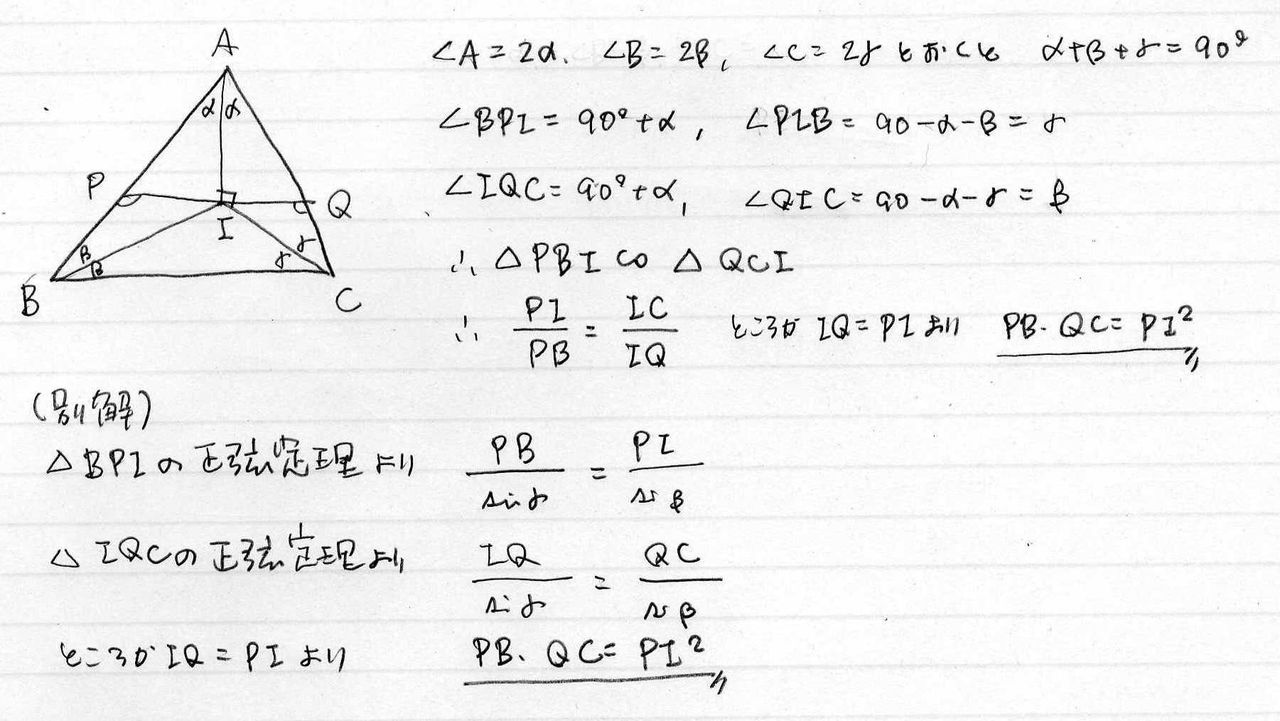 A
α α
P
Q
I
β
β
γ
γ
B
C
∠A=2α. ∠B=2β, ∠C=2γ とおくと α+β+γ=90°
∠BPI=90°+α, ∠PIB=90-α-β=γ
∠IQC=90°+α, ∠QIC=90-α-γ=β
∴ △PBI ∽ △QCI
∴ PI/PB = IC/IQ ところが IQ=PI より PB・QC=PI²
(別解)
△BPIの正弦定理より PB/sinγ = PI/sinβ
△IQCの正弦定理より IQ/sinγ = QC/sinβ
ところがIQ=PIより PB・QC=PI²